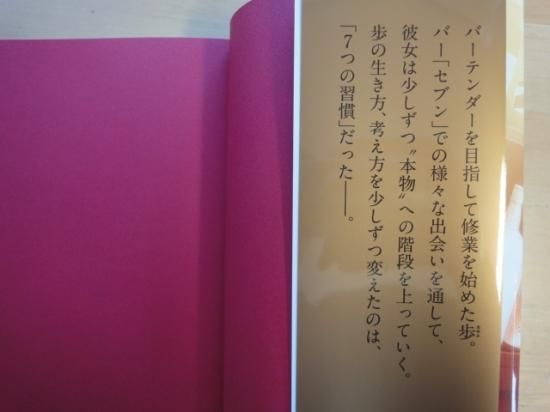 バーテンダーを目指して修業を始めた歩。
バー「セブン」での様々な出会いを通して、
彼女は少しずつ〝本物〟への階段を上っていく。
歩の生き方、考え方を少しずつ変えたのは、
「７つの習慣」だった――。